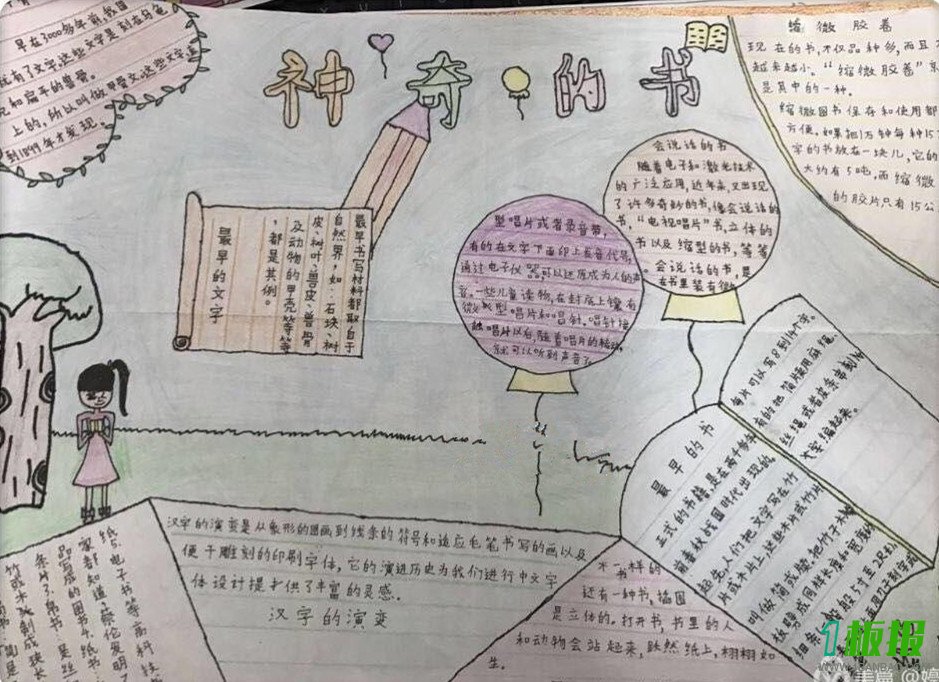 神奇的书
早在3000多年前,我国
就有了文字,这些文字是刻在乌龟
和扁平的兽骨
上的,所以叫做甲骨文,这些文字
到1899年才发现。
缩微胶卷
现在的书,不仅品种多,而且
越来越小。“缩微胶卷”
是其中的一种。
缩微图书保存和使用都
方便。如果把1万钟每种15
字的书放在一块儿,它的
大约有5吨,而缩微
的胶片只有15公
会说话的书
随着电子和激光技术
的广泛应用,近年来,又出现
了许多奇妙的书,像会说话的
书,“电视唱片”书,立体的
书以及缩型的书,等等
会说话的书,是
在书里装有微
型唱片或者录音带,
有的在文字下面印上发音代号,
通过电子仪器,可以还原成为人的声
音。一些儿童读物,在封底上镶有
微型唱片和唱针。唱针接
触唱片以后,随着唱片的
就可以听到声音了
最早的文字
最早书写材料都取自于
自然界,如:石块、树
皮、树叶、兽皮、兽骨
及动物的甲壳等等
,都是其例。
最早的书
正式的书籍,是在两千多年
前春秋战国时代出现的
起先人们把文字写在竹
片或木片上,这些木片或竹片
叫做简或牍,把竹子木
每片可以写8到几十字。
有的把简片用麻绳、
丝绳或者皮条串制
编起来。
汉字的演变是从象形的图画到线条的符号和适应毛笔书写的画以及
便于雕刻的印刷字体,它的演进历史为我们进行中文字
体设计提才供了丰富的灵感。
汉字的演变
书样的
还有一种书,插图
是立体的。打开书,书里的人
和动物会站起来,跃然纸上,栩栩如
生。
纸、电子书等高科技
家都知道,蔡伦发明了
写成的图书4.纸书
条片3.帛书:是丝
竹或木头制成狭长
1板报
WWW.1BANBAO.COM
美篇 @婷